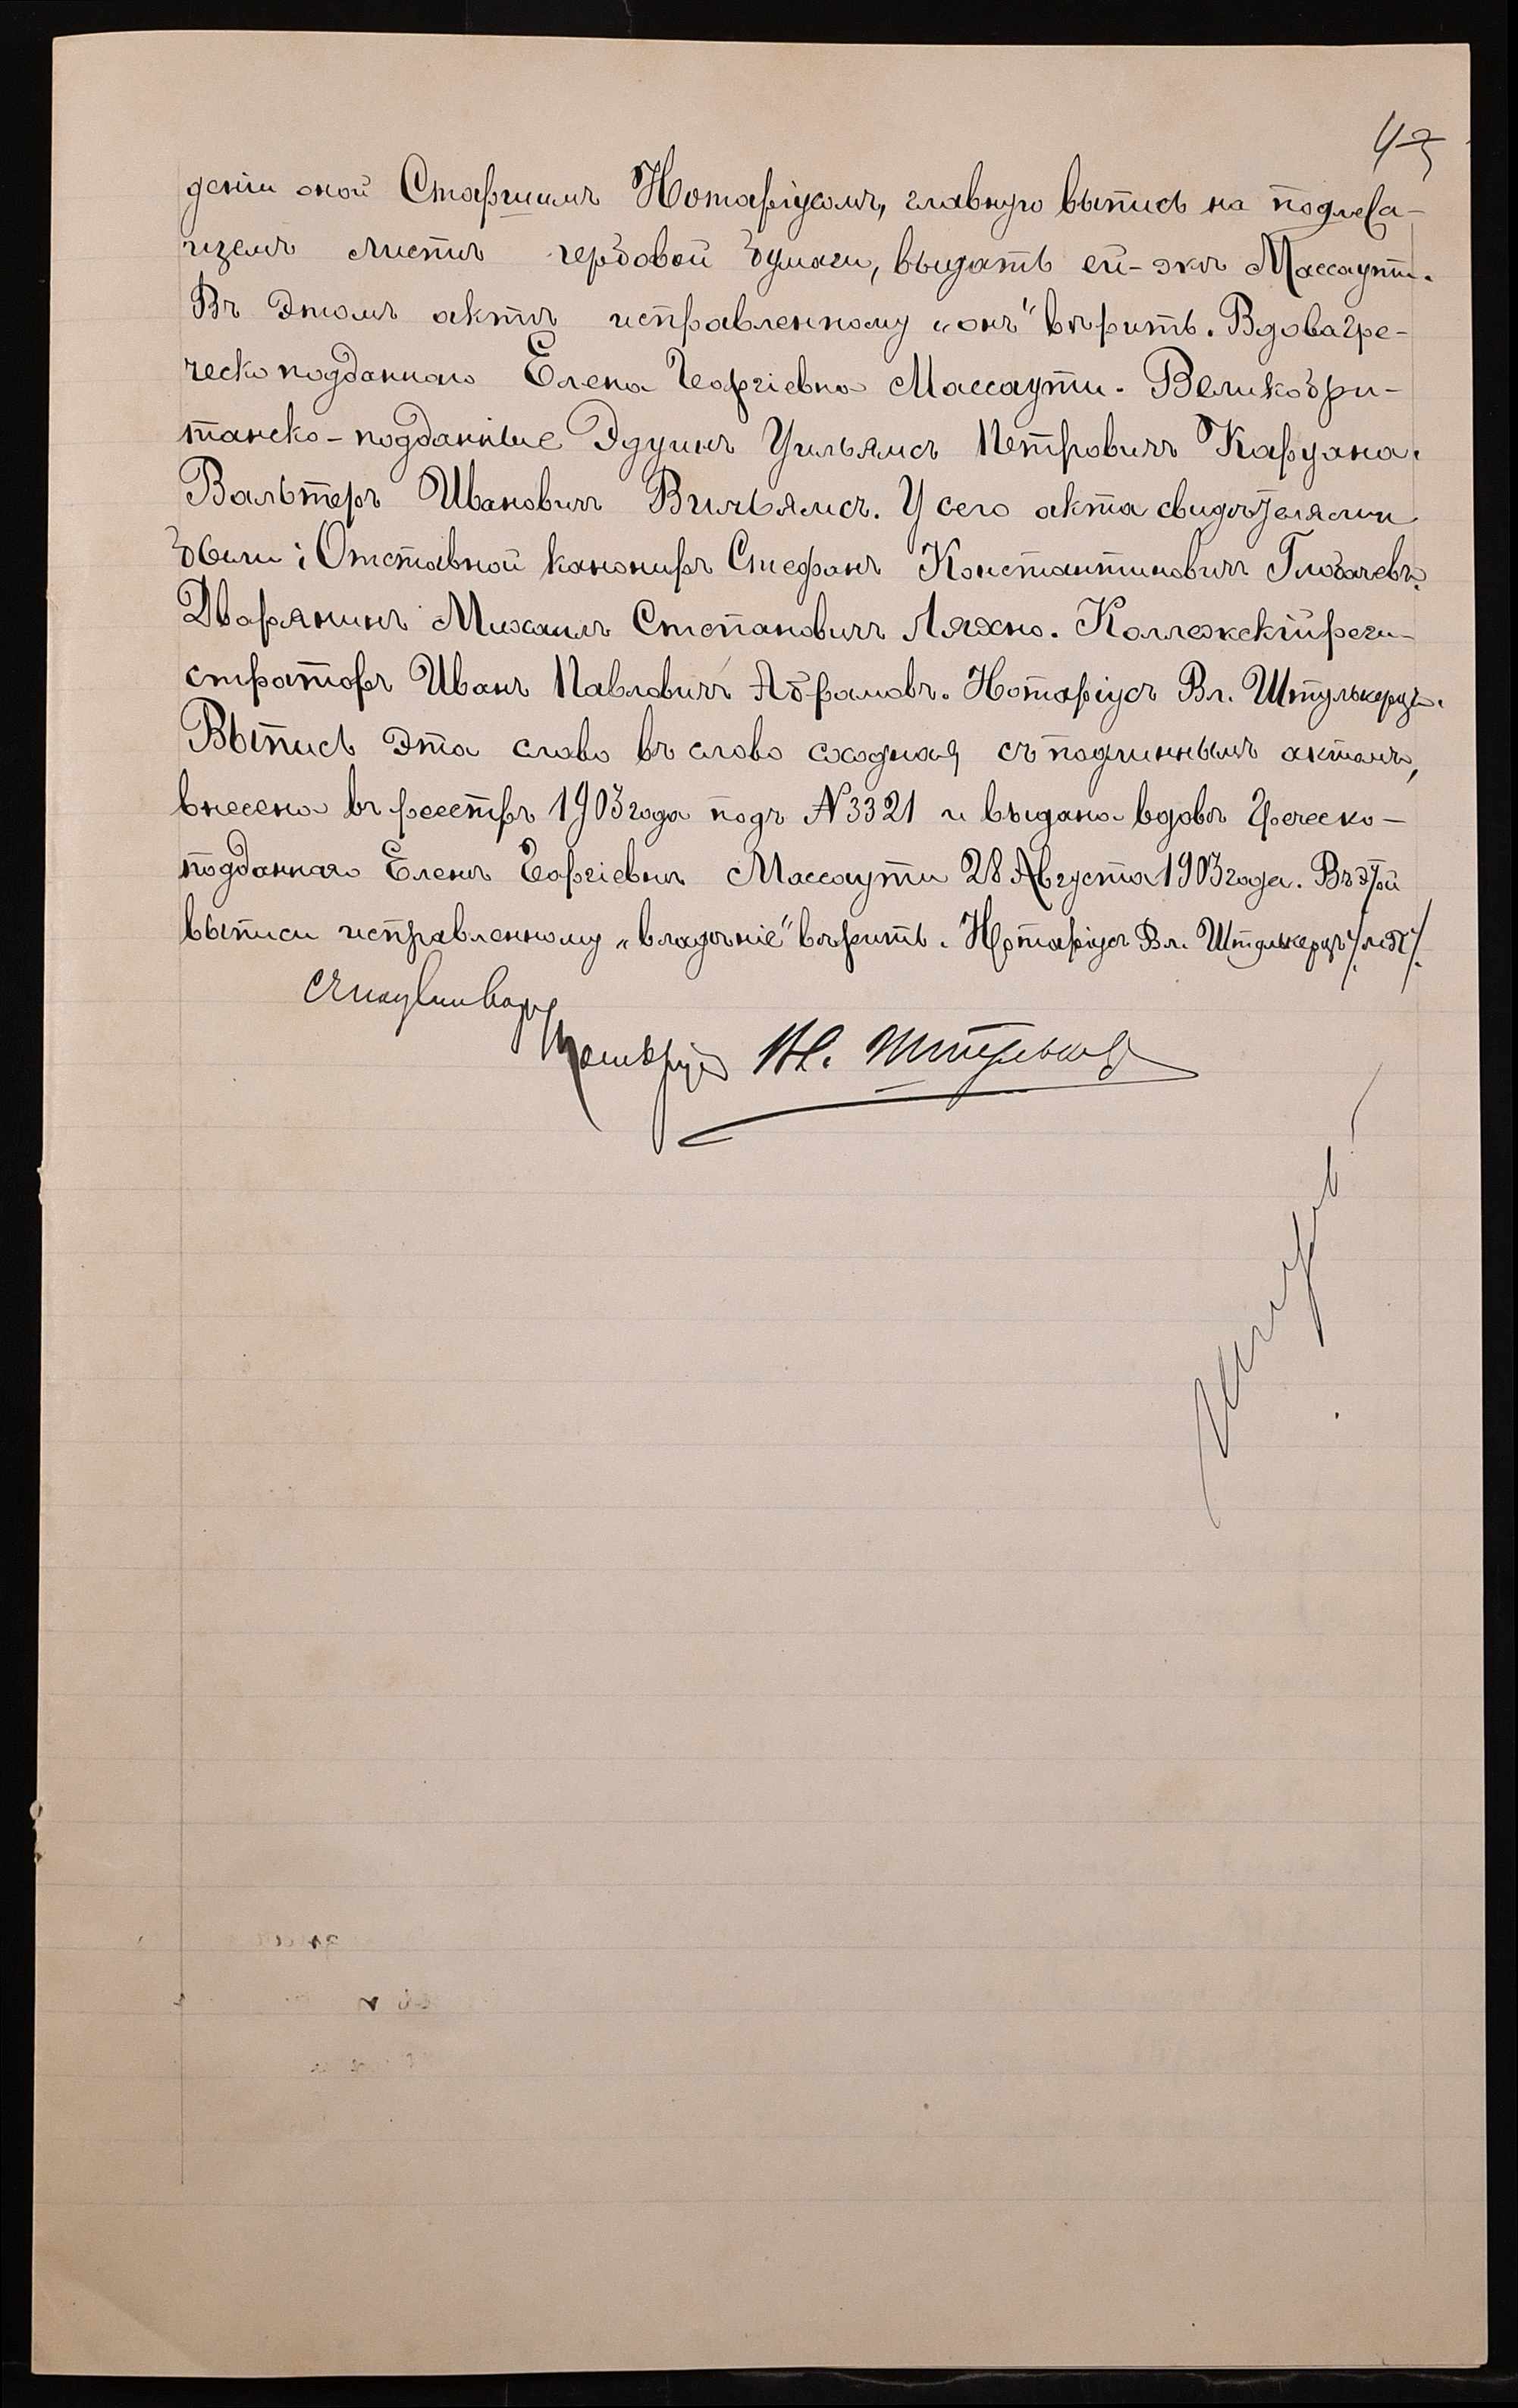 43
деніи оной Старшимъ Нотаріусомъ, главную выпись на подлежа-
щемъ листѣ гербовой бумаги, выдать ей-же Массаути.
Въ этомъ актѣ исправленному „онъ" вѣрить. Вдова гре-
ческо подданнаго Елена Георгіевна Массаути. Великобри-
танско-подданные Эдуинъ Уильямсъ Петровичъ Каруана.
Вальтеръ Ивановичъ Вильямсъ. У сего акта свидѣтелями
были: Отставной канониръ Стефанъ Константиновичъ Глобачевъ.
Дворянинъ Михаилъ Степановичъ Ляхно. Коллежскій реги-
страторъ Иванъ Павловичъ Абрамовъ. Нотаріусъ Вл. Штулькерцъ.
Выпись эта слово въ слово сходная съ подлиннымъ актомъ,
внесена въ реестръ 1903 года подъ N 3321 и выдана вдовѣ Греческо-
подданнаго Еленѣ Георгіевнѣ Массаути 28 Августа 1903 года. Въ этой
выписи исправленному „владѣніе" вѣрить. Нотаріусъ Вл. Штулькерцъ /м.п./.
Нотаріусъ Вл. Штулькерцъ